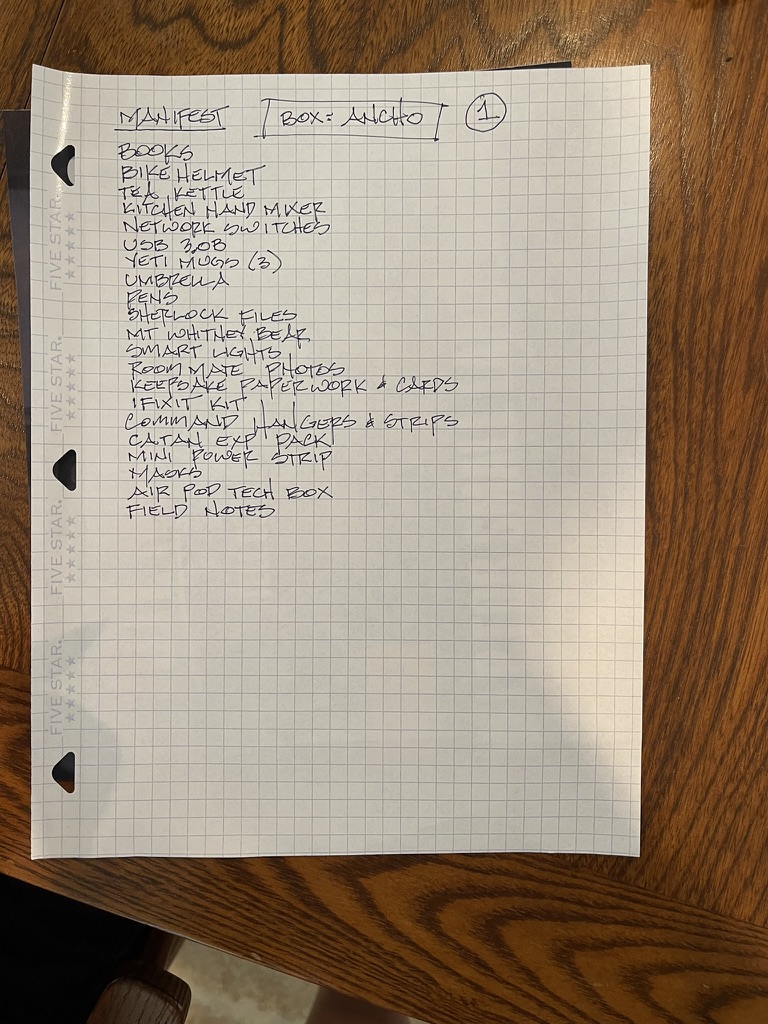 MANIFEST BOX: ANCHO 1
BOOKS
BIKE HELMET
TEA KETTLE
KITCHEN HAND MIXER
NETWORK SWITCHES
USB 3.0B
YETI MUGS (3)
UMBRELLA
PENS
SHERLOCK FILES
MT WHITNEY BEAR
SMART LIGHTS
ROOM MATE PHOTOS
KEEPSAKE PAPERWORK & CARDS
IFIXIT KIT
COMMAND HANGERS & STRIPS
CATAN EXP PACK
MINI POWER STRIP
MASKS
AIR POD TECH BOX
FIELD NOTES
FIVE STAR.
FIVE STAR.
FIVE STAR.
FIVE STAR.